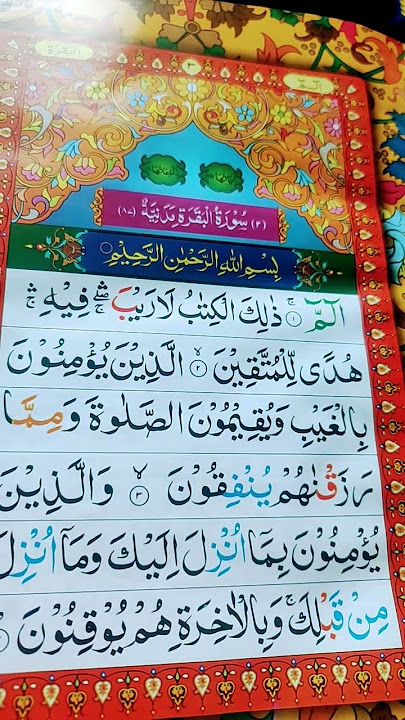 البقرة
٣
الٓمّٓ
(٢) سُوْرَةُ الْبَقَرَةِ مَدَنِيَّةٌ (٨٧)
بِسْمِ اللّٰهِ الرَّحْمٰنِ الرَّحِيْمِ
الٓمّٓ ۚ ۝١ ذٰلِكَ الْكِتٰبُ لَا رَيْبَ ۛۖ فِيْهِ ۛۚ
هُدًى لِّلْمُتَّقِيْنَ ۙ ۝٢ الَّذِيْنَ يُؤْمِنُوْنَ
بِالْغَيْبِ وَيُقِيْمُوْنَ الصَّلٰوةَ وَمِمَّا
رَزَقْنٰهُمْ يُنْفِقُوْنَ ۙ ۝٣ وَالَّذِيْنَ
يُؤْمِنُوْنَ بِمَآ اُنْزِلَ اِلَيْكَ وَمَآ اُنْزِلَ
مِنْ قَبْلِكَ ۚ وَبِالْاٰخِرَةِ هُمْ يُوْقِنُوْنَ